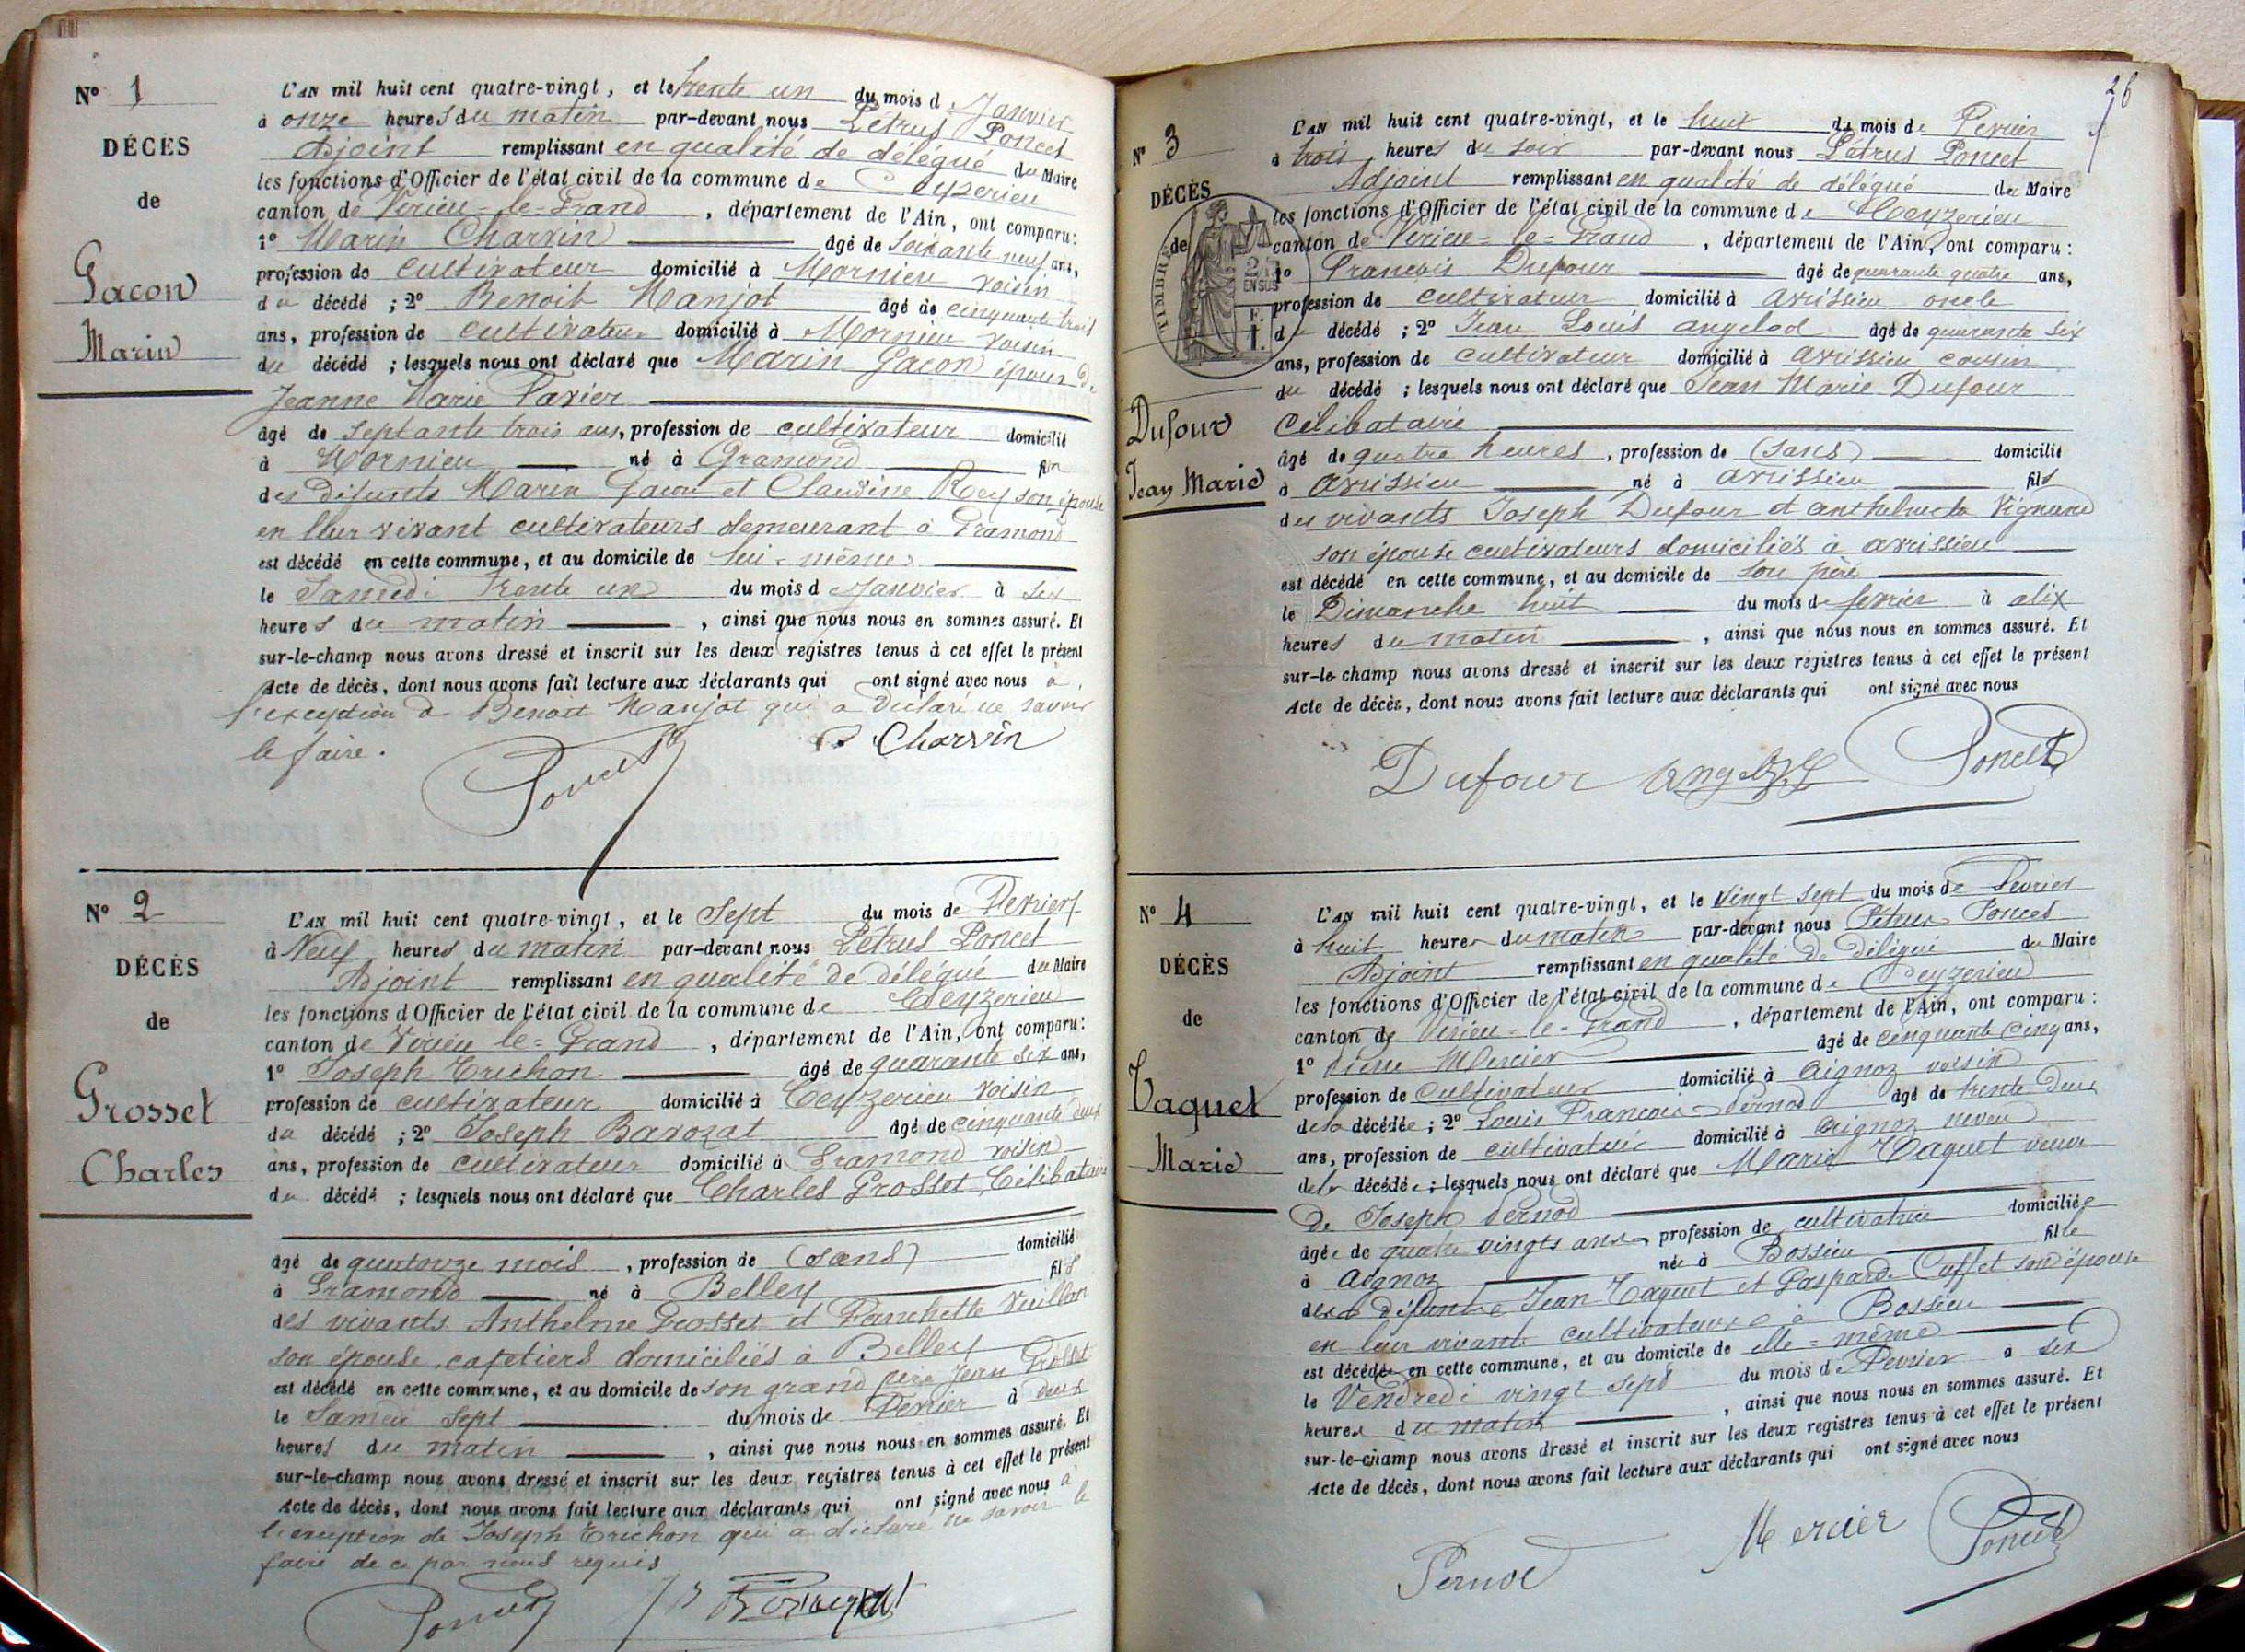 N° 1
DÉCÈS
de
Gacon
Marin
L'AN mil huit cent quatre-vingt, et le trente un du mois d Janvier
à onze heures du matin par-devant nous Pétrus Poncet
Adjoint remplissant en qualité de délégué du Maire
les fonctions d'Officier de l'état civil de la commune de Ceyzerieu
canton de Virieu-le-Grand, département de l'Ain, ont comparu:
1° Marin Charvin âgé de soixante neuf ans,
profession de cultivateur domicilié à Mornieu voisin
du décédé ; 2° Benoit Manjot âgé de cinquante trois
ans, profession de cultivateur domicilié à Mornieu voisin
du décédé ; lesquels nous ont déclaré que Marin Gacon époux de
Jeanne Marie Pavier
âgé de septante trois ans, profession de cultivateur domicilié
à Mornieu né à Gramond fils
des défunts Marin Gacon et Claudine Rey son épouse
en leur vivant cultivateurs demeurant à Gramond
est décédé en cette commune, et au domicile de lui-même
le Samedi trente un du mois d Janvier à six
heures du matin, ainsi que nous nous en sommes assuré. Et
sur-le-champ nous avons dressé et inscrit sur les deux registres tenus à cet effet le présent
Acte de décès, dont nous avons fait lecture aux déclarants qui ont signé avec nous à
l'exception de Benoit Manjot qui a déclaré ne savoir
le faire.
Charvin
Poncet
N° 2
DÉCÈS
de
Grosset
Charles
L'AN mil huit cent quatre-vingt, et le Sept du mois de Février
à Neuf heures du matin par-devant nous Pétrus Poncet
Adjoint remplissant en qualité de délégué du Maire
les fonctions d'Officier de l'état civil de la commune de Ceyzerieu
canton de Virieu le=Grand, département de l'Ain, ont comparu:
1° Joseph Trichon âgé de quarante six ans,
profession de cultivateur domicilié à Ceyzerieu voisin
du décédé ; 2° Joseph Barozat âgé de cinquante deux
ans, profession de cultivateur domicilié à Gramond voisin
du décédé ; lesquels nous ont déclaré que Charles Grosset, Célibataire
âgé de quatorze mois, profession de (sans) domicilié
à Gramond né à Belley fils
des vivants Anthelme Grosset et Fanchette Vuillon
son épouse, cafetiers domiciliés à Belley
est décédé en cette commune, et au domicile de son grand père Jean Grosset
le Samedi sept du mois de Février à deux
heures du matin, ainsi que nous nous en sommes assuré. Et
sur-le-champ nous avons dressé et inscrit sur les deux registres tenus à cet effet le présent
Acte de décès, dont nous avons fait lecture aux déclarants qui ont signé avec nous à
l'exception de Joseph Trichon qui a déclaré ne savoir le
faire de ce par nous requis
Poncet
26
N° 3
DÉCÈS
de
TIMBRE
25
EN SUS
Dufour
Jean Marie
L'AN mil huit cent quatre-vingt, et le huit du mois de Février
à trois heures du soir par-devant nous Pétrus Poncet
Adjoint remplissant en qualité de délégué du Maire
les fonctions d'Officier de l'état civil de la commune de Ceyzerieu
canton de Virieu=le=Grand, département de l'Ain, ont comparu :
1° Francois Dufour âgé de quarante quatre ans,
profession de cultivateur domicilié à avrissieu oncle
du décédé ; 2° Jean Louis angelod âgé de quarante six
ans, profession de cultivateur domicilié à avrissieu cousin
du décédé ; lesquels nous ont déclaré que Jean Marie Dufour
Célibataire
âgé de quatre heures, profession de (sans) domicilié
à avrissieu né à avrissieu fils
des vivants Joseph Dufour et anthelmette Vignand
son épouse cultivateurs domiciliés à avrissieu
est décédé en cette commune, et au domicile de son père
le Dimanche huit du mois de février à dix
heures du matin, ainsi que nous nous en sommes assuré. Et
sur-le-champ nous avons dressé et inscrit sur les deux registres tenus à cet effet le présent
Acte de décès, dont nous avons fait lecture aux déclarants qui ont signé avec nous
Dufour Angelod Poncet
N° 4
DÉCÈS
de
Vaguet
Marie
L'AN mil huit cent quatre-vingt, et le vingt sept du mois de Février
à huit heures du matin par-devant nous Pétrus Poncet
Adjoint remplissant en qualité de délégué du Maire
les fonctions d'Officier de l'état civil de la commune de Ceyzerieu
canton de Virieu-le-Grand, département de l'Ain, ont comparu :
1° Pierre Mercier âgé de cinquante cinq ans,
profession de cultivateur domicilié à Aignoz voisin
de la décédée ; 2° Louis Francois Pernod âgé de trente deux
ans, profession de cultivateur domicilié à Aignoz neveu
de la décédée ; lesquels nous ont déclaré que Marie Vaguet veuve
de Joseph Pernod
âgée de quatre vingts ans, profession de cultivatrice domiciliée
à Aignoz née à Bossieu fille
des défunts Jean Vaguet et Gasparde Cuffet son épouse
en leur vivants cultivateurs à Bossieu
est décédée en cette commune, et au domicile de elle=même
le Vendredi vingt sept du mois de Février à six
heures du matin, ainsi que nous nous en sommes assuré. Et
sur-le-champ nous avons dressé et inscrit sur les deux registres tenus à cet effet le présent
Acte de décès, dont nous avons fait lecture aux déclarants qui ont signé avec nous
Pernod Mercier Poncet